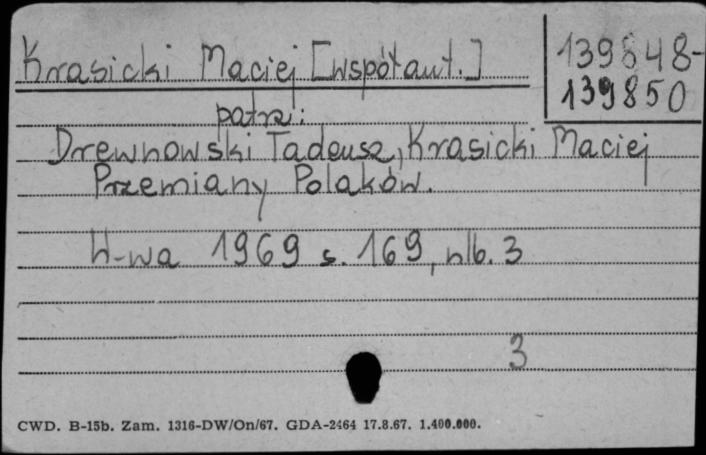 Krasicki Maciej [współaut.]
139848-
139850
patrz:
Drewnowski Tadeusz, Krasicki Maciej
Przemiany Polaków.
W-wa 1969 s. 169, nlb. 3
3
CWD. B-15b. Zam. 1316-DW/On/67. GDA-2464 17.8.67. 1.400.000.